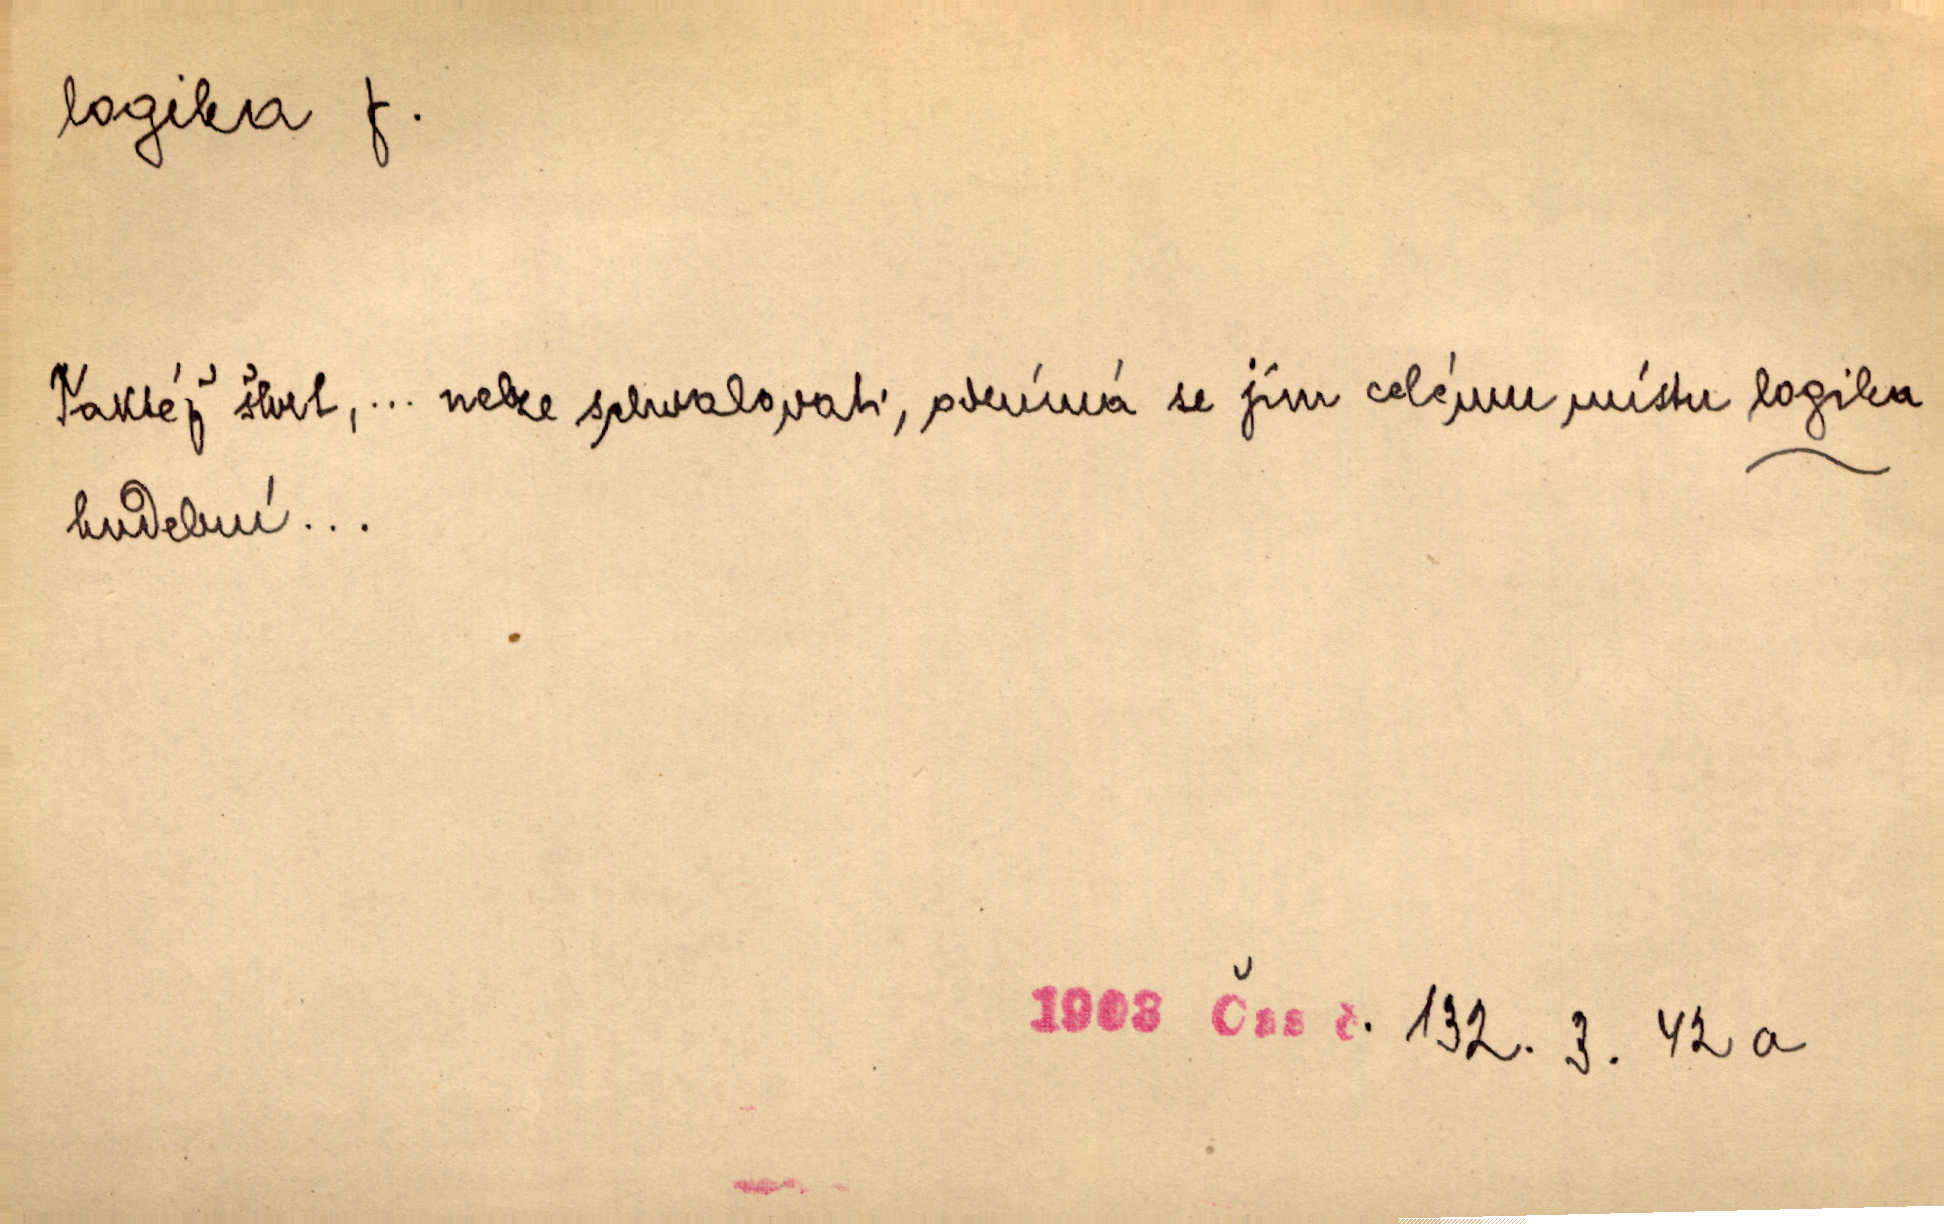 logika f.
Taktéž škrt, ... nelze schvalovati, odnímá se jím celému místu logika
hudební ...
1908 Čas č. 132. 3. 42 a